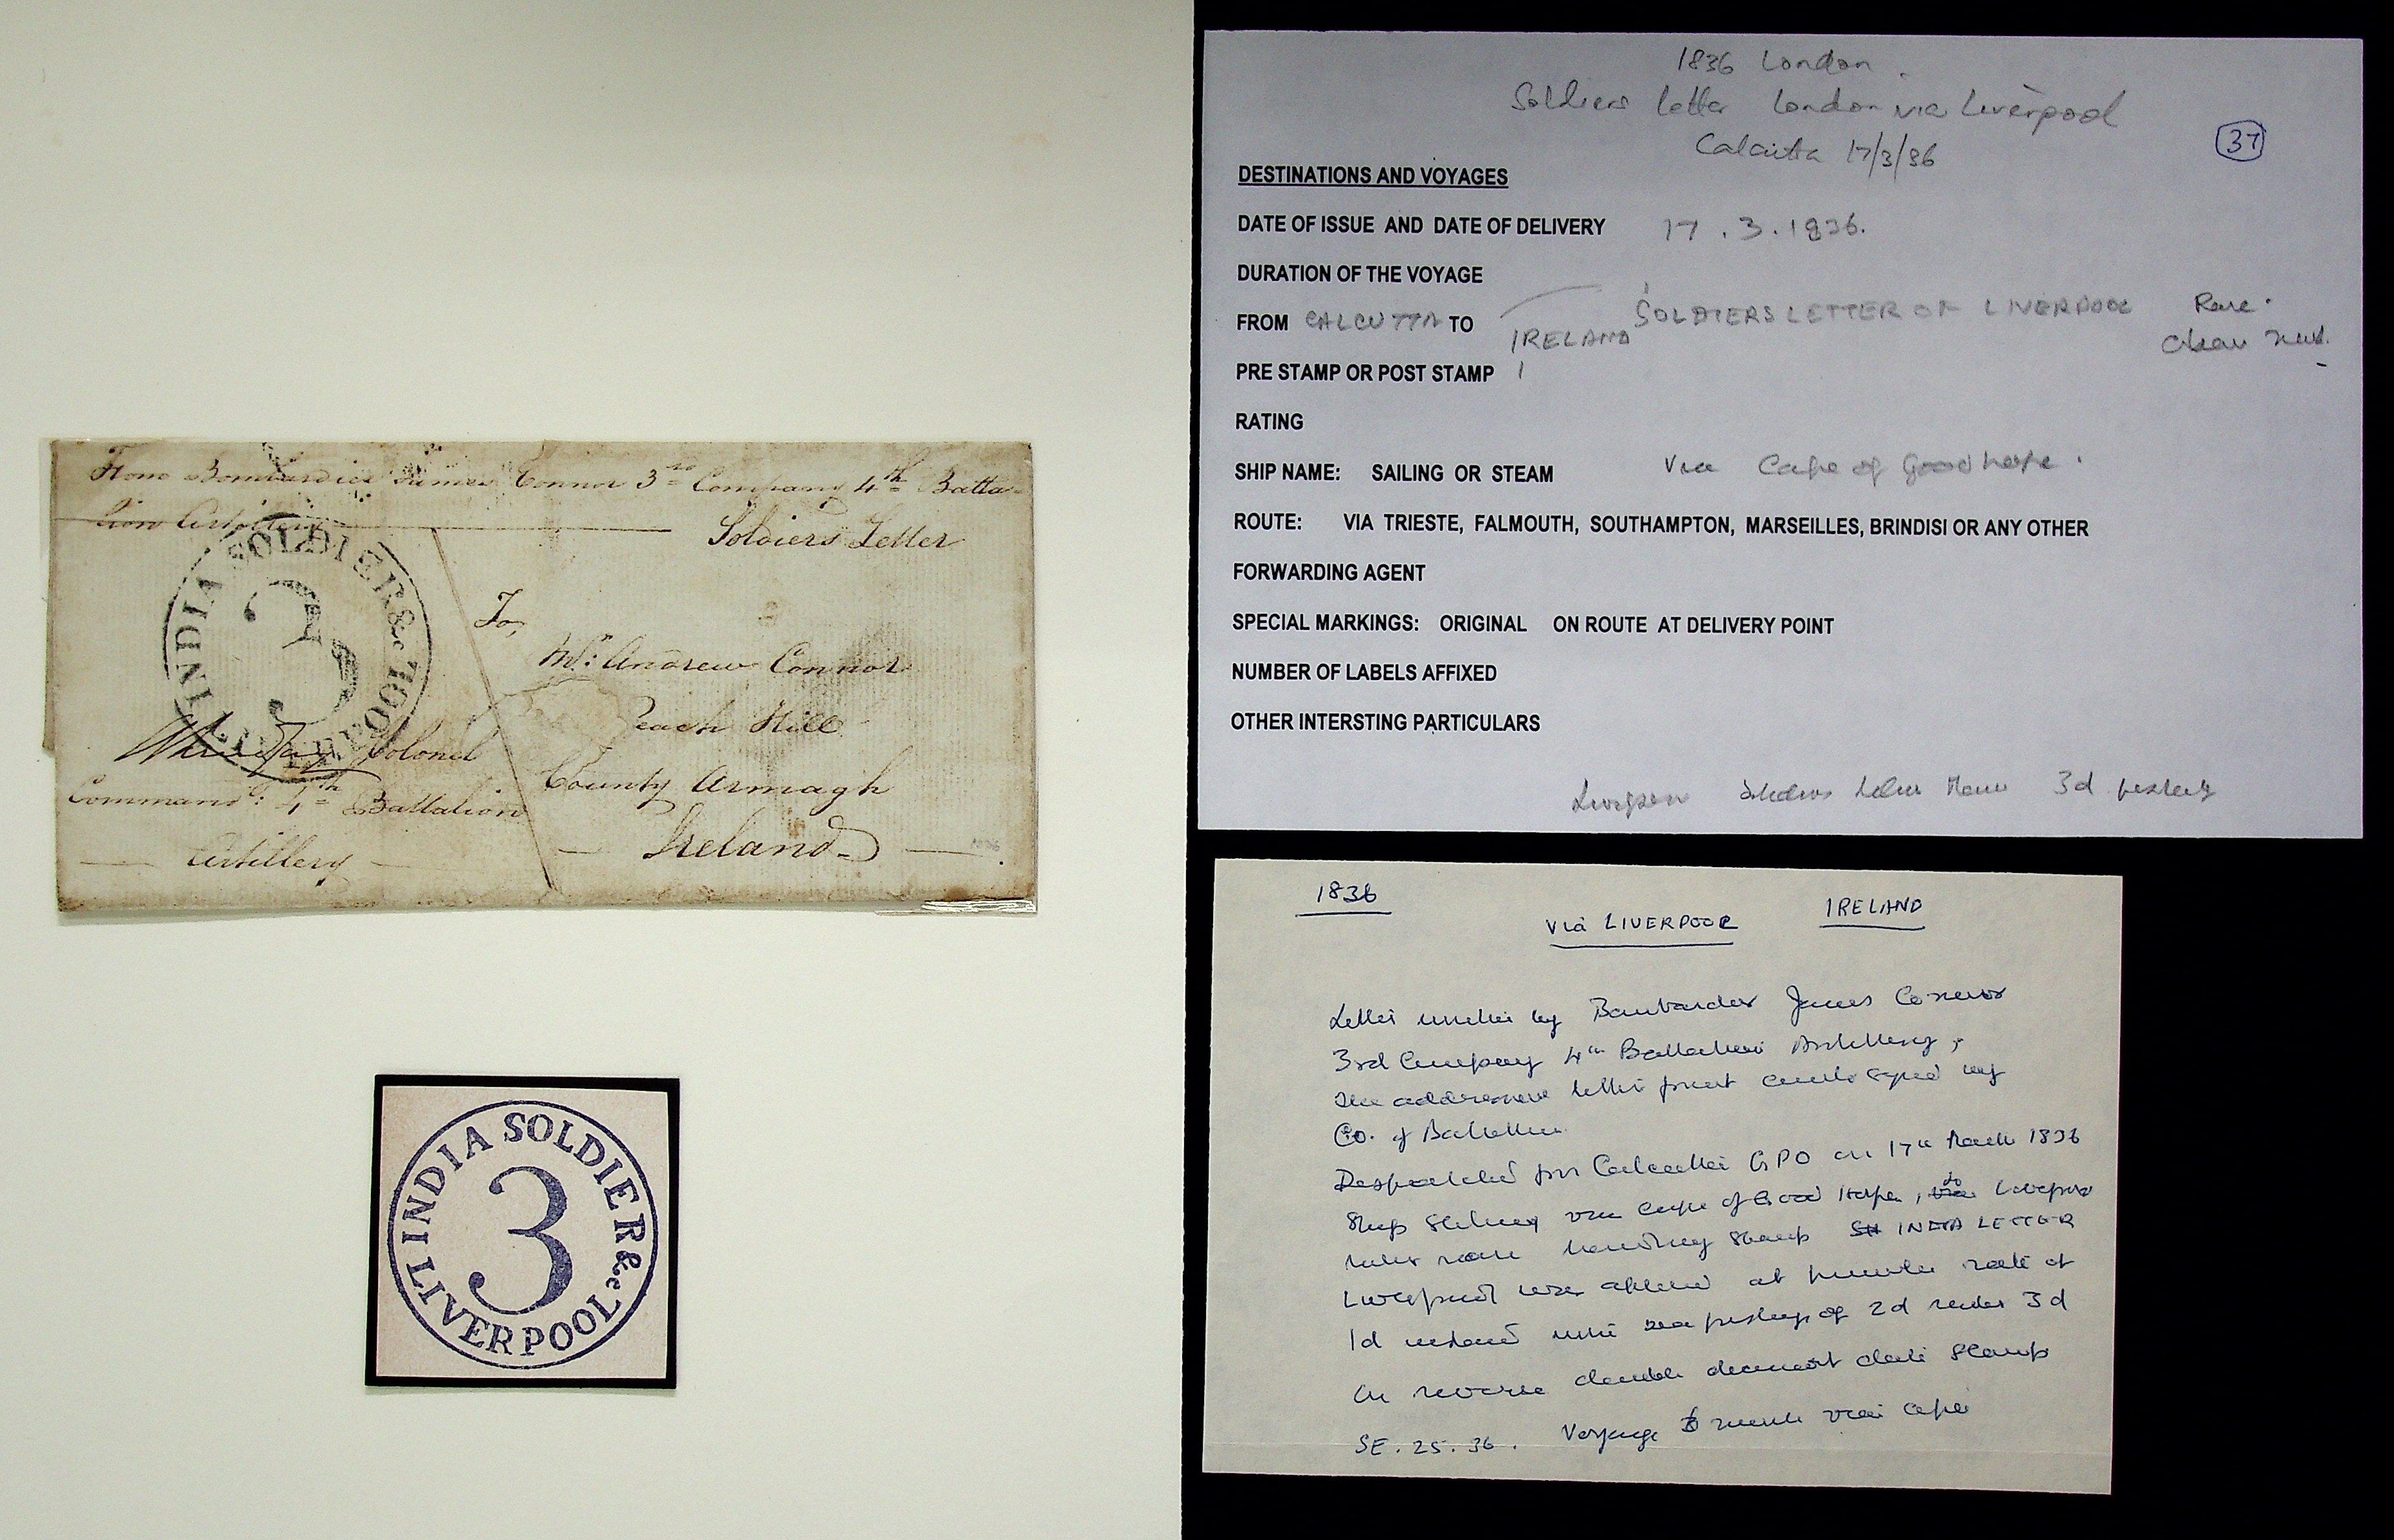 From Bombardier James Connor 3rd Company 4th Batta-
lion Artillery
Soldiers Letter
INDIA SOLDIER &c LIVERPOOL
3
To,
Mr: Andrew Connor
Peach Hill
County Armagh
Ireland
Colonel
Command: 4th Battalion
Artillery
INDIA SOLDIER &c LIVERPOOL
3
1836 London
Soldiers letter London via Liverpool
Calcutta 17/3/36
37
DESTINATIONS AND VOYAGES
DATE OF ISSUE AND DATE OF DELIVERY 17.3.1836.
DURATION OF THE VOYAGE
FROM CALCUTTA TO IRELAND SOLDIERS LETTER OF LIVERPOOL Rare.
clear
PRE STAMP OR POST STAMP
RATING
SHIP NAME: SAILING OR STEAM Via Cape of Good hope.
ROUTE: VIA TRIESTE, FALMOUTH, SOUTHAMPTON, MARSEILLES, BRINDISI OR ANY OTHER
FORWARDING AGENT
SPECIAL MARKINGS: ORIGINAL ON ROUTE AT DELIVERY POINT
NUMBER OF LABELS AFFIXED
OTHER INTERSTING PARTICULARS
3d
1836
Via LIVERPOOL
IRELAND
Letter written by Bombardier James Connor
3rd Company 4th Battalion Artillery,
letter front signed by
Co. of Battalion
Despatched from Calcutta GPO on 17th March 1836
Ship via Cape of Good Hope, to Liverpool
stamp INDIA LETTER
Liverpool was applied at rate of
1d inland with sea postage of 2d 3d
On reverse double date stamp
SE.25.36. Voyage 6 month via Cape